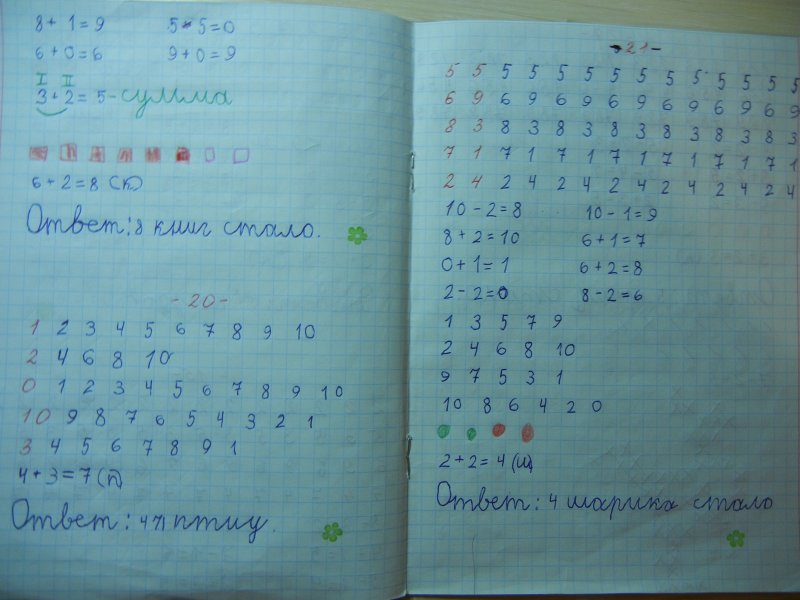 8 + 1 = 9 5 - 5 = 0
6 + 0 = 6 9 + 0 = 9
I II
3 + 2 = 5 - сумма
6 + 2 = 8 (к)
Ответ: 8 книг стало.
- 20 -
1 2 3 4 5 6 7 8 9 10
2 4 6 8 10
0 1 2 3 4 5 6 7 8 9 10
10 9 8 7 6 5 4 3 2 1
3 4 5 6 7 8 9 1
4 + 3 = 7 (п)
Ответ: птиц.
- 21 -
5 5 5 5 5 5 5 5 5 5 5 5 5 5
6 9 6 9 6 9 6 9 6 9 6 9 6 9
8 3 8 3 8 3 8 3 8 3 8 3 8 3
7 1 7 1 7 1 7 1 7 1 7 1 7 1
2 4 2 4 2 4 2 4 2 4 2 4 2 4
10 - 2 = 8 10 - 1 = 9
8 + 2 = 10 6 + 1 = 7
0 + 1 = 1 6 + 2 = 8
2 - 2 = 0 8 - 2 = 6
1 3 5 7 9
2 4 6 8 10
9 7 5 3 1
10 8 6 4 2 0
2 + 2 = 4 (ш)
Ответ: 4 шарика стало